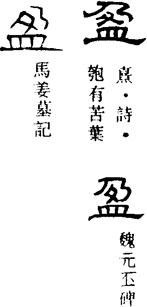 盈
熹・詩・
匏有苦葉
盈
魏元丕碑
盈
馬姜墓記